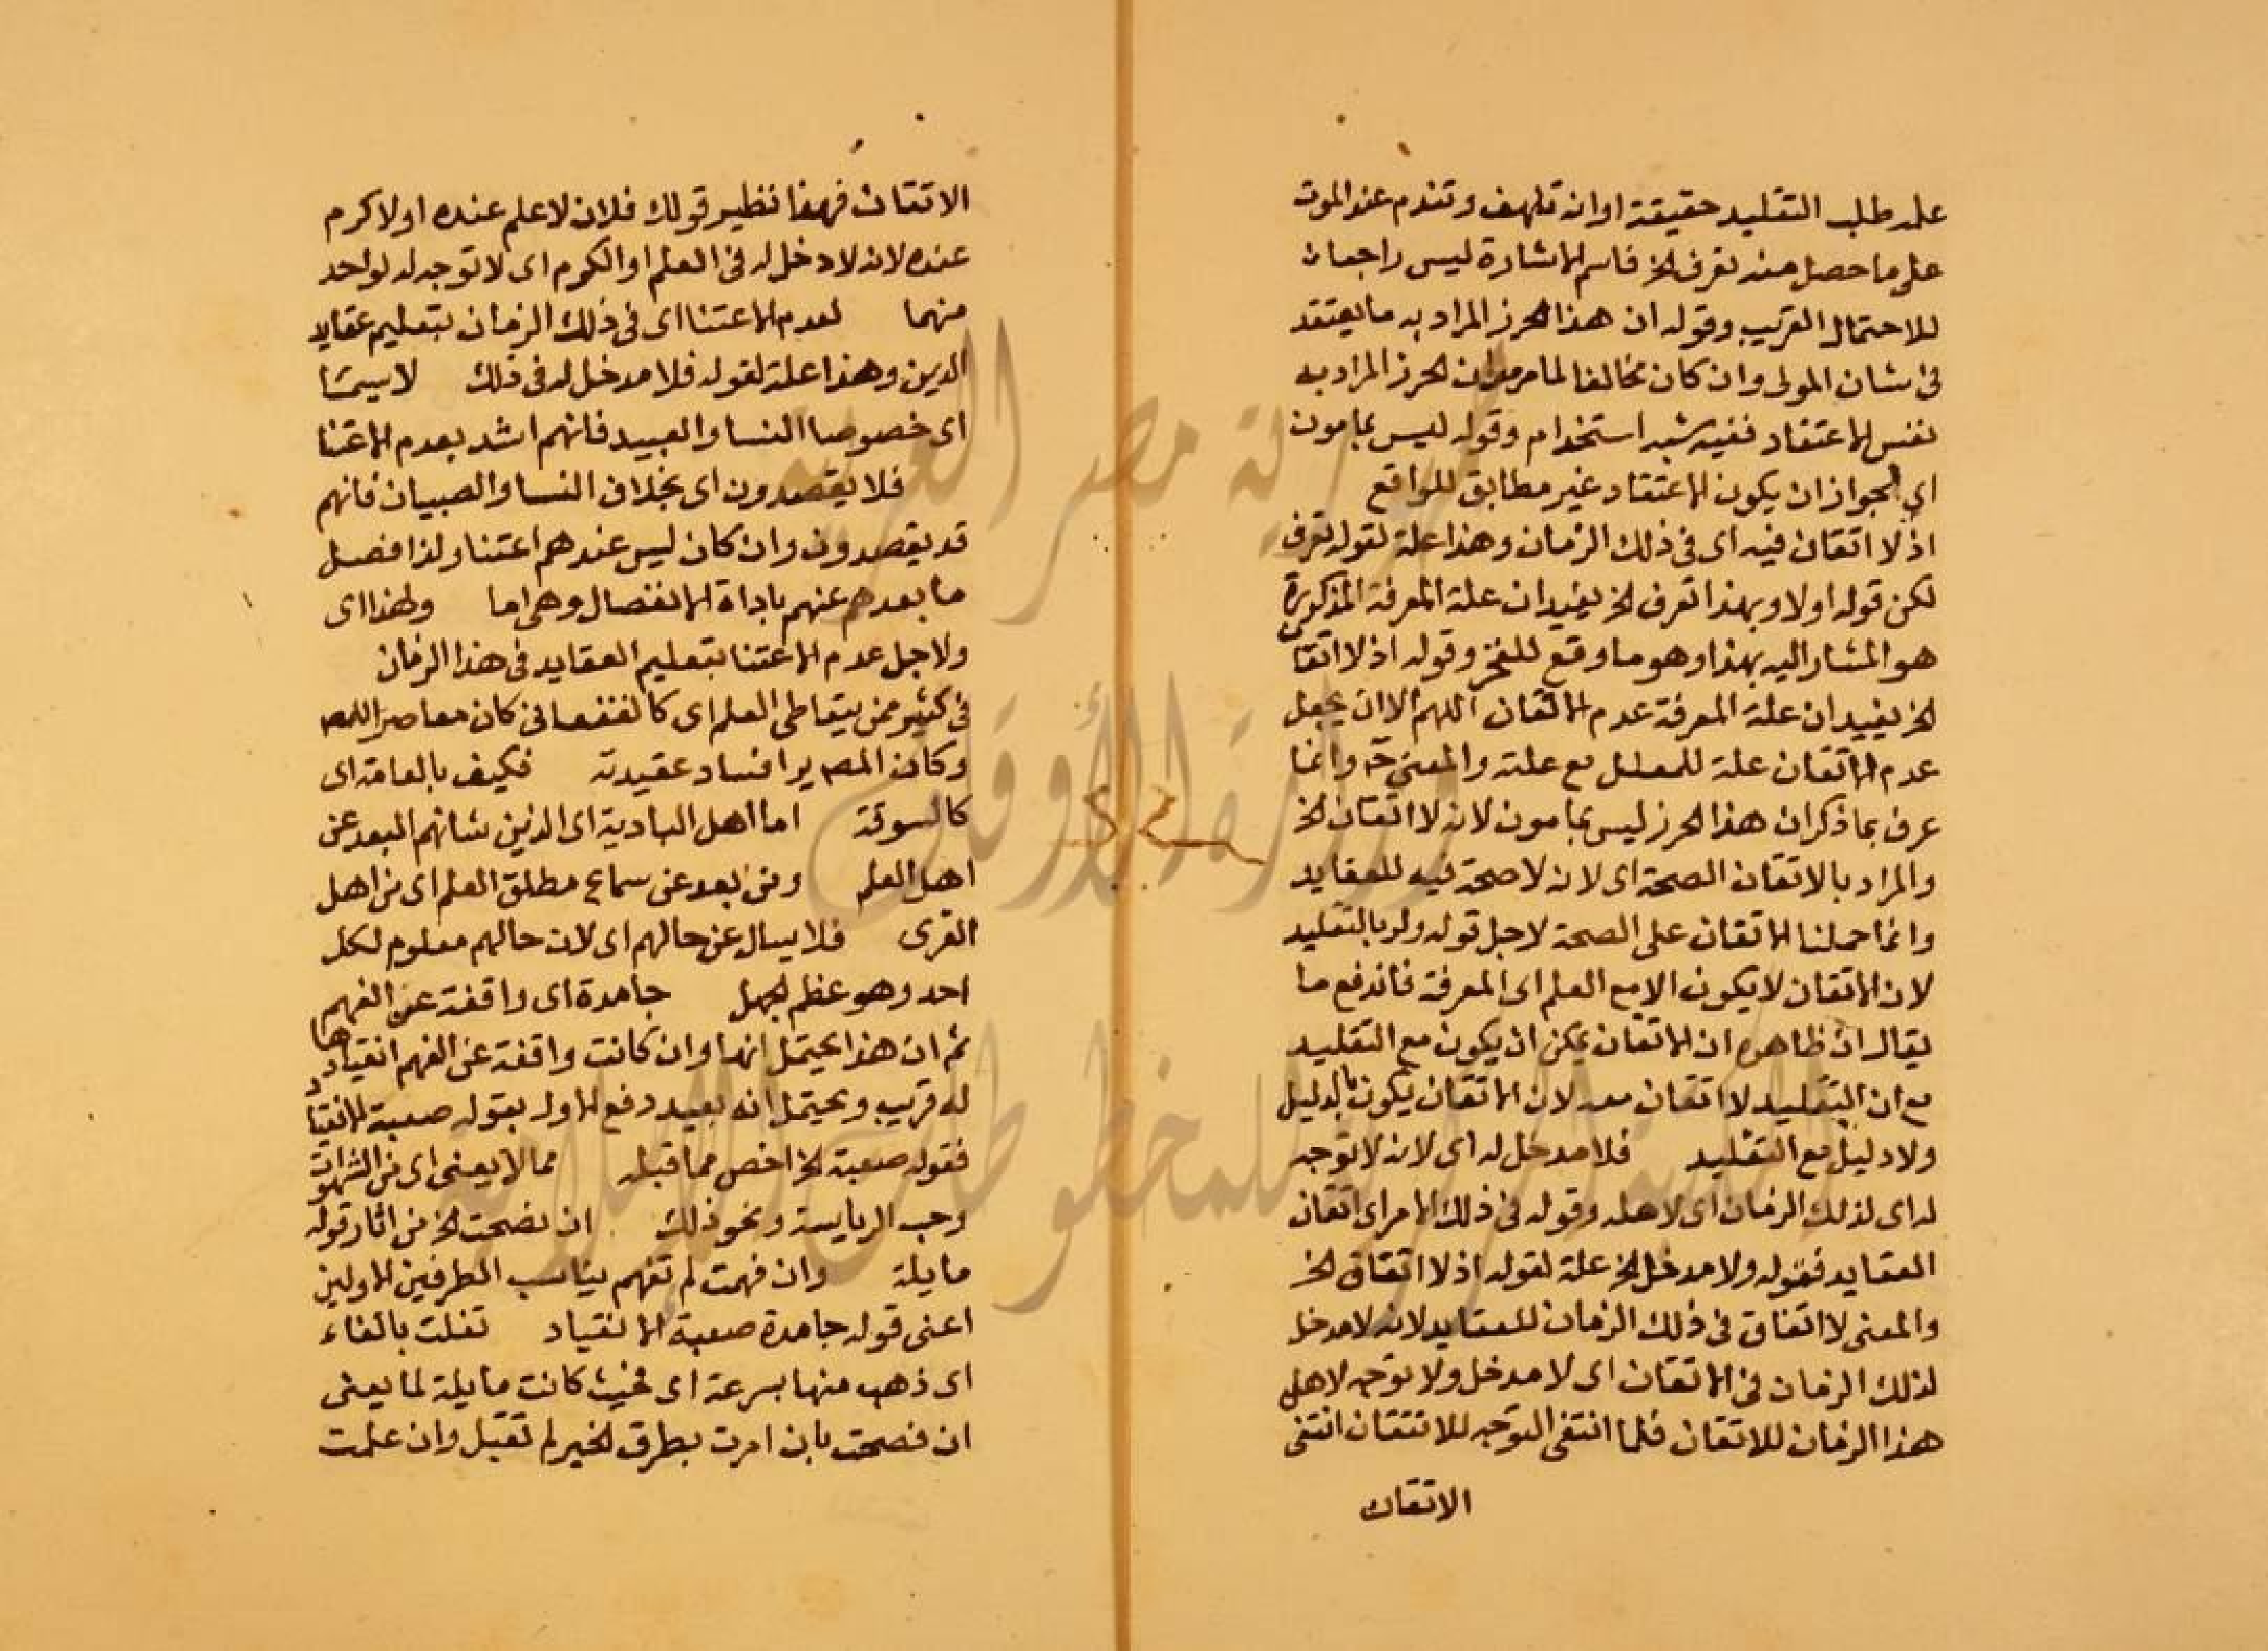 على طلب التقليد حقيقة او انه تلهف وتندم عند الموت
على ما حصل منه تعرف الخ فاسم الاشارة ليس راجعا
للاحتمال القريب وقوله ان هذا الحرز المراد به ما يعتقد
فى شان المولى وان كان مخالفا لما مر من ان الحرز المراد به
نفس الاعتقاد ففيه شبه استخدام وقوله ليس بمامون
اى لجواز ان يكون الاعتقاد غير مطابق للواقع
اذ لا اتقان فيه اى فى ذلك الزمان وهذا علة لقوله تعرف
لكن قوله اولا وبهذا تعرف الخ يفيد ان علة المعرفة المذكورة
هو المشار اليه بهذا وهو ما وقع للفخر وقوله اذ لا اتقان
الخ يفيد ان علة المعرفة عدم الاتقان اللهم الا ان يجعل
عدم الاتقان علة للمعلل مع علته والمعنى ح وانما
عرف بما ذكر ان هذا الحرز ليس بمامون لانه لا اتقان الخ
والمراد بالاتقان الصحة اى لانه لا صحة فيه للعقايد
وانما حملنا الاتقان على الصحة لاجل قوله ولو بالتقليد
لان الاتقان لا يكون الا مع العلم اى المعرفة فاندفع ما
يقال ان ظاهره ان الاتقان يمكن ان يكون مع التقليد
مع ان التقليد لا اتقان معه لان الاتقان يكون بالدليل
ولا دليل مع التقليد فلا مدخل له اى لانه لا توجه
له اى لذلك الزمان اى لاهله وقوله فى ذلك الامر اى اتقان
العقايد فقوله ولا مدخل الخ علة لقوله اذ لا اتقان الخ
والمعنى لا اتفاق فى ذلك الزمان للعقايد لانه لا مدخل
لذلك الزمان فى الاتقان اى لا مدخل ولا توجه لاهل
هذا الزمان للاتقان فلما انتفى التوجه للاتقان انتفى
الاتقان
الاتقان فهذا نظير قولك فلان لا علم عنده او لا كرم
عنده لانه لا دخل له فى العلم او الكرم اى لا توجه له لواحد
منهما لعدم الاعتنا اى فى ذلك الزمان بتعليم عقايد
الدين وهذا علة لقوله فلا مدخل له فى ذلك لا سيما
اى خصوصا النسا والعبيد فانهم اشد بعدم الاعتنا
فلا يقصدون اى بخلاف النسا والصبيان فانهم
قد يقصدون وان كان ليس عندهم اعتنا ولذا فصل
ما بعدهم عنهم باداة الانفصال وهى اما ولهذا اى
ولاجل عدم الاعتنا بتعليم العقايد فى هذا الزمان
فى كثير ممن يتعاطى العلم اى كان معاصر المص
وكان المص يرا فساد عقيدته فكيف بالعامة اى
كالسوقة اما اهل البادية اى الذين شانهم البعد عن
اهل العلم ومن بعد عن سماع مطلق العلم اى من اهل
القرى فلا يسال عن حالهم اى لان حالهم معلوم لكل
احد وهو عظم الجهل جامدة اى واقفة عن الفهم
ثم ان هذا يحتمل انها وان كانت واقفة عن الفهم انقيادها
له قريب ويحتمل انه بعيد دفع الاول بقوله صعبة الانقياد
فقوله صعبة الخ اخص مما قبله مما لا يعنى اى من الشهوات
وحب الرياسة ونحو ذلك ان نصحت الخ من اثار قوله
مايلة وان فهمت لم تفهم يناسب الطرفين الاولين
اعنى قوله جامدة صعبة الانقياد تفلت بالفاء
اى ذهب منها بسرعة اى فحيث كانت مايلة لما يعنى
ان نصحت بان امرت بطرق الخير لم تقبل وان علمت